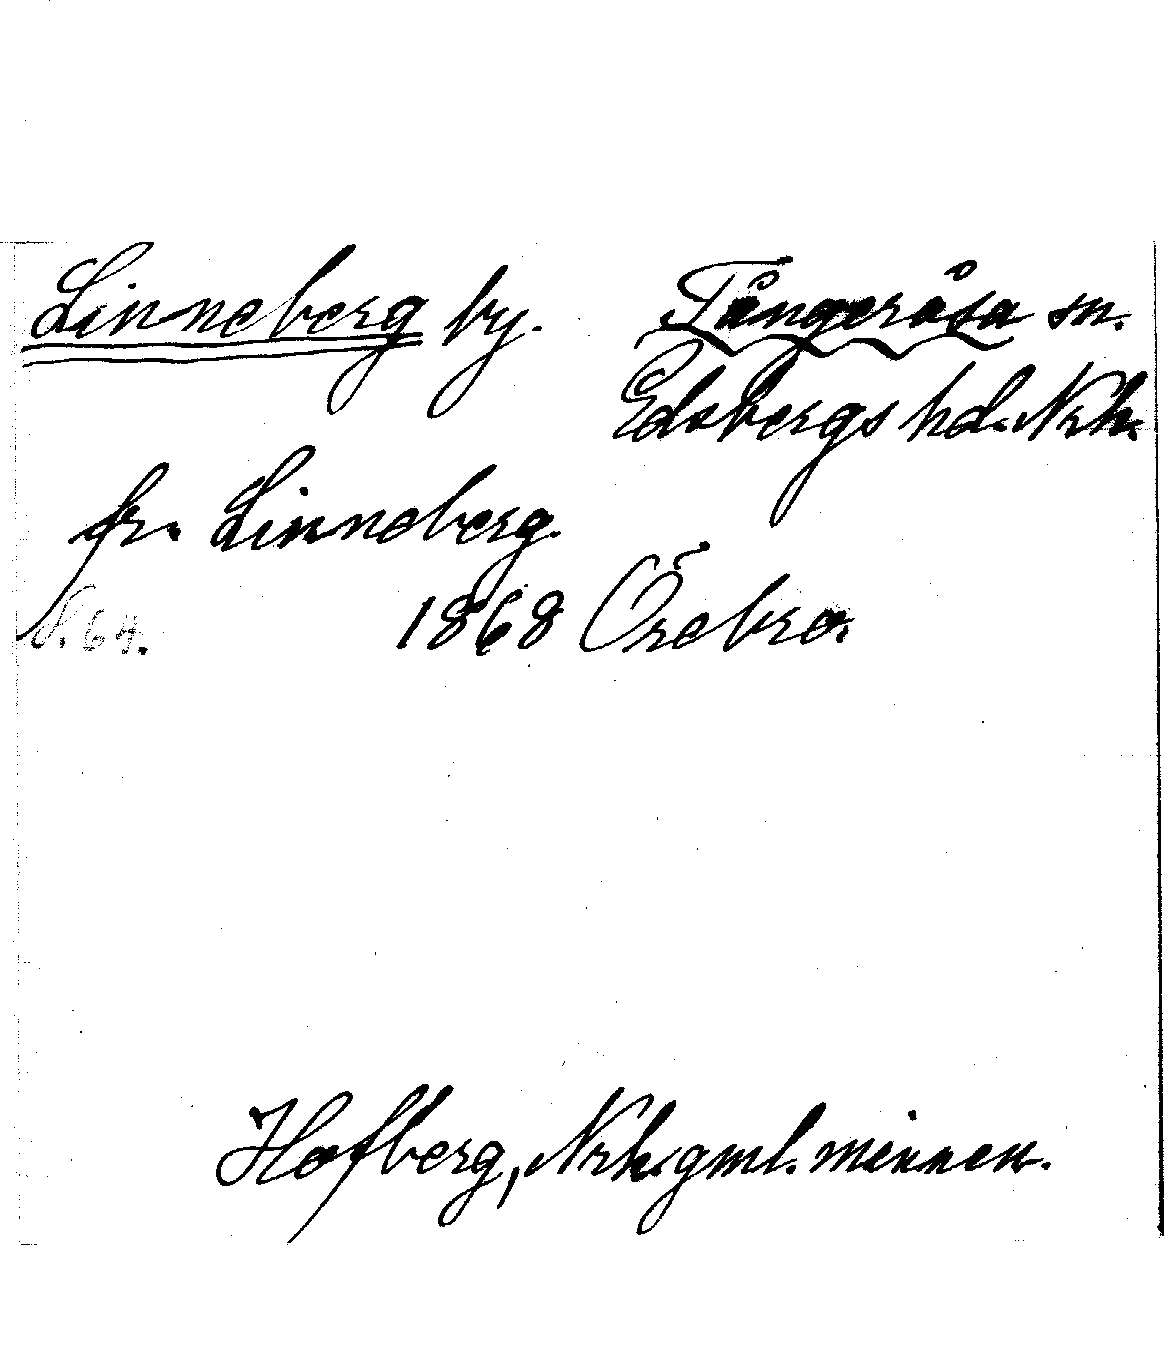 Linneberg by. Tångeråsa sn.
Edsbergs hd. Nrk.
fr. Linneberg.
N. 64. 1868 Örebro.
Hofberg, Nrk. gml. minnen.